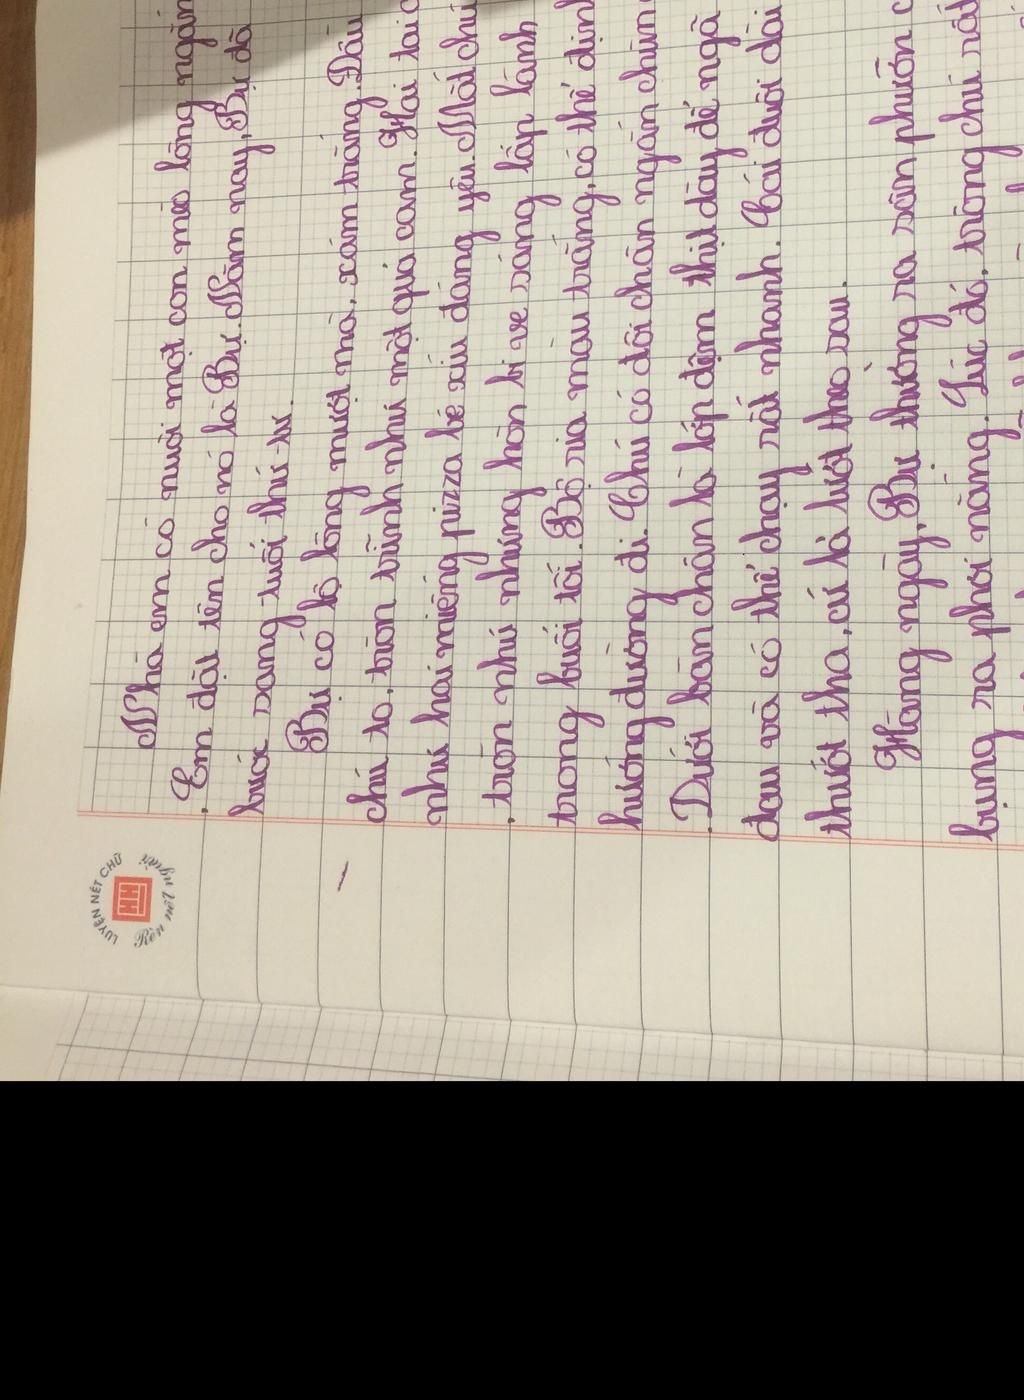 LUYỆN NÉT CHỮ
Rèn nết người
Nhà em có nuôi một con mèo lông ngắn
. Em đặt tên cho nó là Bự. Năm nay, Bự đã
bước sang tuổi thứ tư.
Bự có bộ lông mượt mà, xám trắng. Đầu
chú to, tròn trĩnh như một quả cam. Hai tai c
như hai miếng pizza bé xíu đáng yêu. Mắt chú
, tròn như những hòn bi ve sáng lấp lánh
trong buổi tối. Bộ ria màu trắng, có thể định
hướng đường đi. Chú có đôi chân ngắn chũn
. Dưới bàn chân là lớp đệm thịt dày để ngã
đau và có thể chạy rất nhanh. Cái đuôi dài
thướt tha, cứ là lướt theo sau.
Hàng ngày, Bự thường ra sân phưỡn c
bụng ra phơi nắng. Lúc đó, trông chú rất